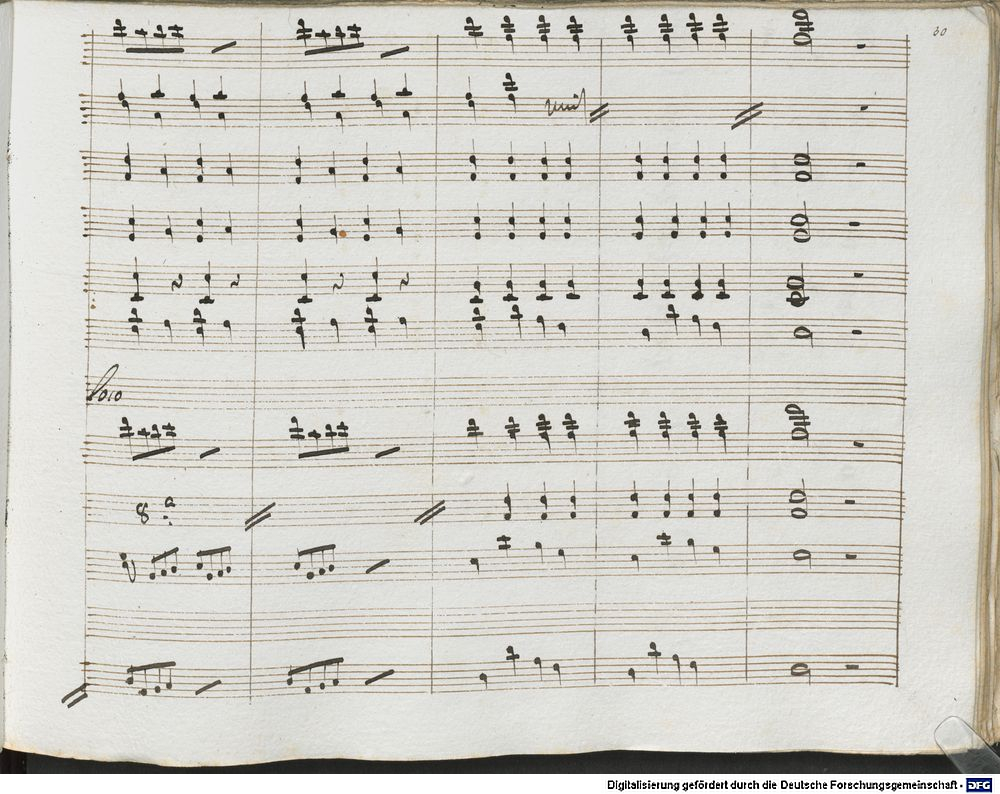 30
unis
Loco
8 a
Digitalisierung gefördert durch die Deutsche Forschungsgemeinschaft - DFG